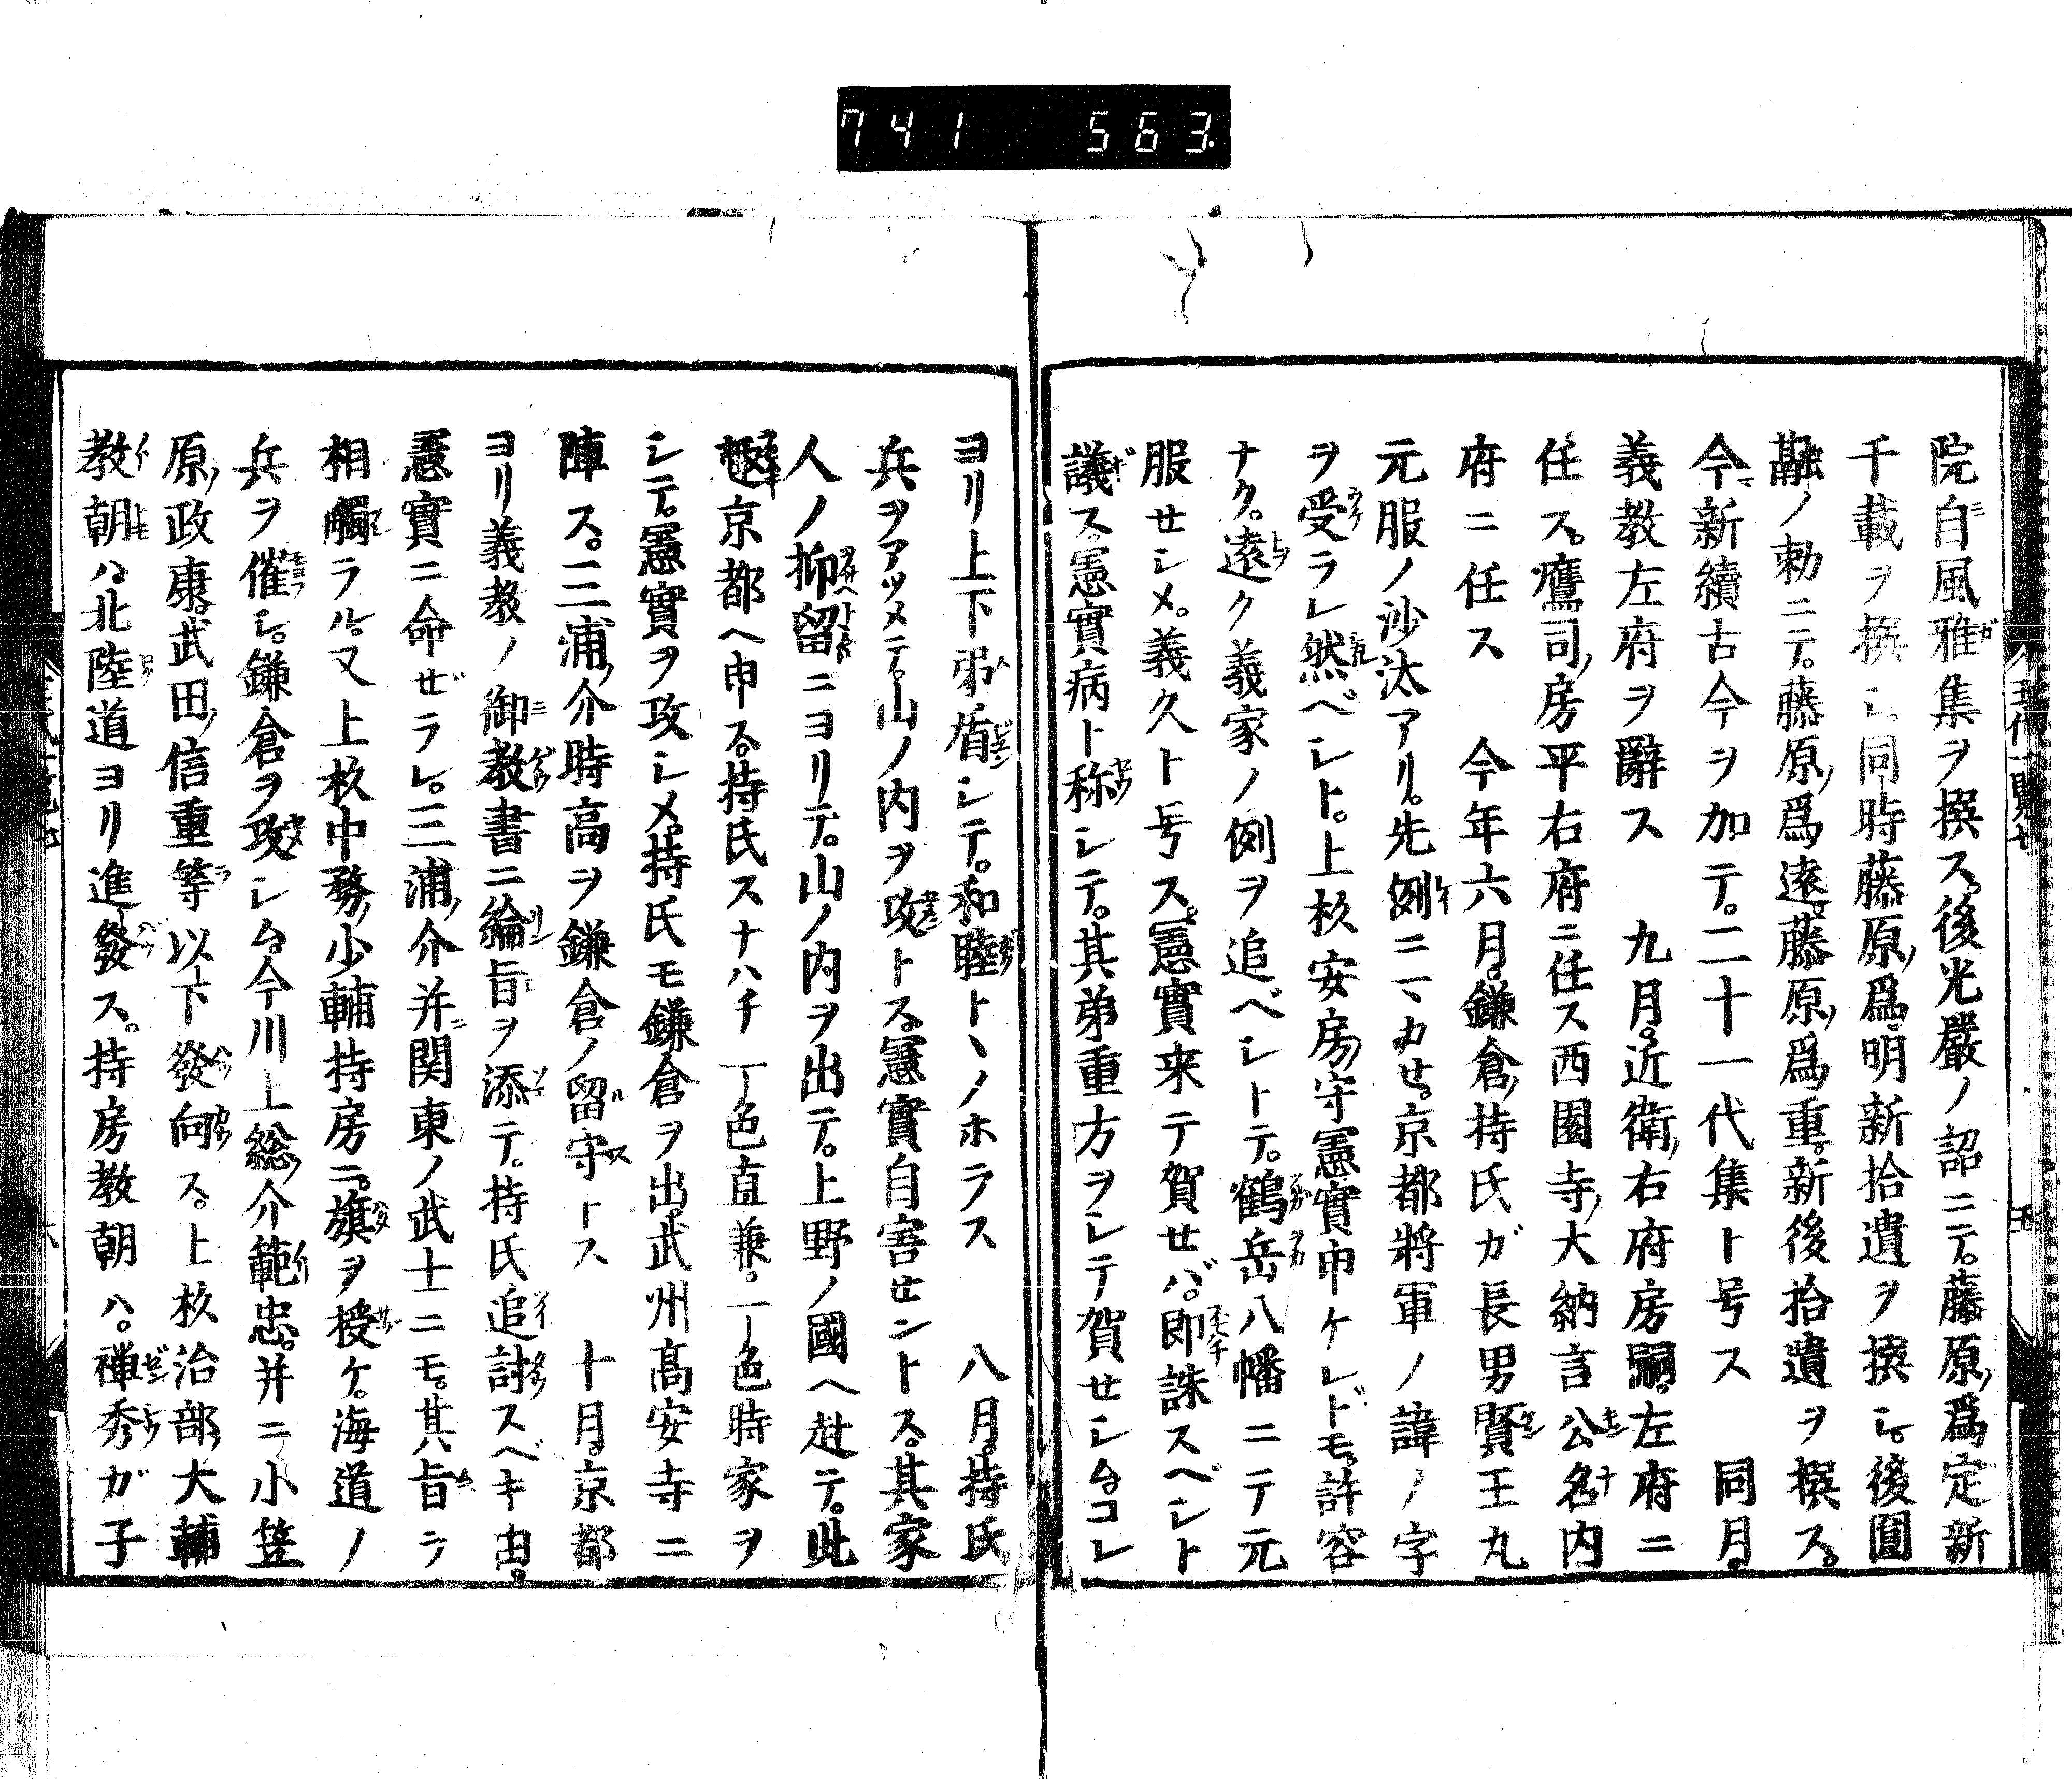 741 563
院自風雅集ヲ撰ス。後光嚴ノ詔ニテ。藤原ノ爲定新
千載ヲ撰シ。同時藤原ノ爲明新拾遺ヲ撰シ。後圓
融ノ勅ニテ。藤原ノ爲遠。藤原ノ爲重。新後拾遺ヲ撰ス。
今新續古今ヲ加テ。二十一代集ト号ス 同月。
義教左府ヲ辭ス 九月。近衛ノ右府房嗣。左府ニ
任ス。鷹司ノ房平右府ニ任ス西園寺ノ大納言公名内
府ニ任ス 今年六月。鎌倉ノ持氏ガ長男賢王丸
元服ノ沙汰アリ。先例ニマカせ。京都将軍ノ諱ノ字
ヲ受ラレ然ベシト。上杦安房ノ守憲實申ケレドモ。許容
ナク。遠ク義家ノ例ヲ追ベシトテ。鶴岳八幡ニテ元
服せシメ。義久ト号ス。憲實来テ賀せバ。即誅スベシト
議ス。憲實病ト称シテ。其弟重方ヲシテ賀せシム。コレ
ヨリ上下矛盾シテ。和睦トヽノホラス 八月。持氏
兵ヲアツメテ。山ノ内ヲ攻トス。憲實自害せントス。其家
人ノ抑留ニヨリテ。山ノ内ヲ出テ。上野ノ國ヘ赴テ。此
趣京都ヘ申ス。持氏スナハチ一色直兼。一色時家ヲ
シテ。憲實ヲ攻シメ。持氏モ鎌倉ヲ出。武州髙安寺ニ
陣ス。三浦ノ介時高ヲ鎌倉ノ留守トス 十月。京都
ヨリ義教ノ御教書ニ綸旨ヲ添テ。持氏追討スベキ由。
憲實ニ命ぜラレ。三浦ノ介并関東ノ武士ニモ。其旨ヲ
相觸ラル。又上杦中務ノ少輔持房ニ。旗ヲ授ケ。海道ノ
兵ヲ催シ。鎌倉ヲ攻シム。今川上総ノ介範忠。并ニ小笠
原ノ政康。武田ノ信重等以下發向ス。上杦治部ノ大輔
教朝ハ。北陸道ヨリ進發ス。持房教朝ハ。禅秀ガ子